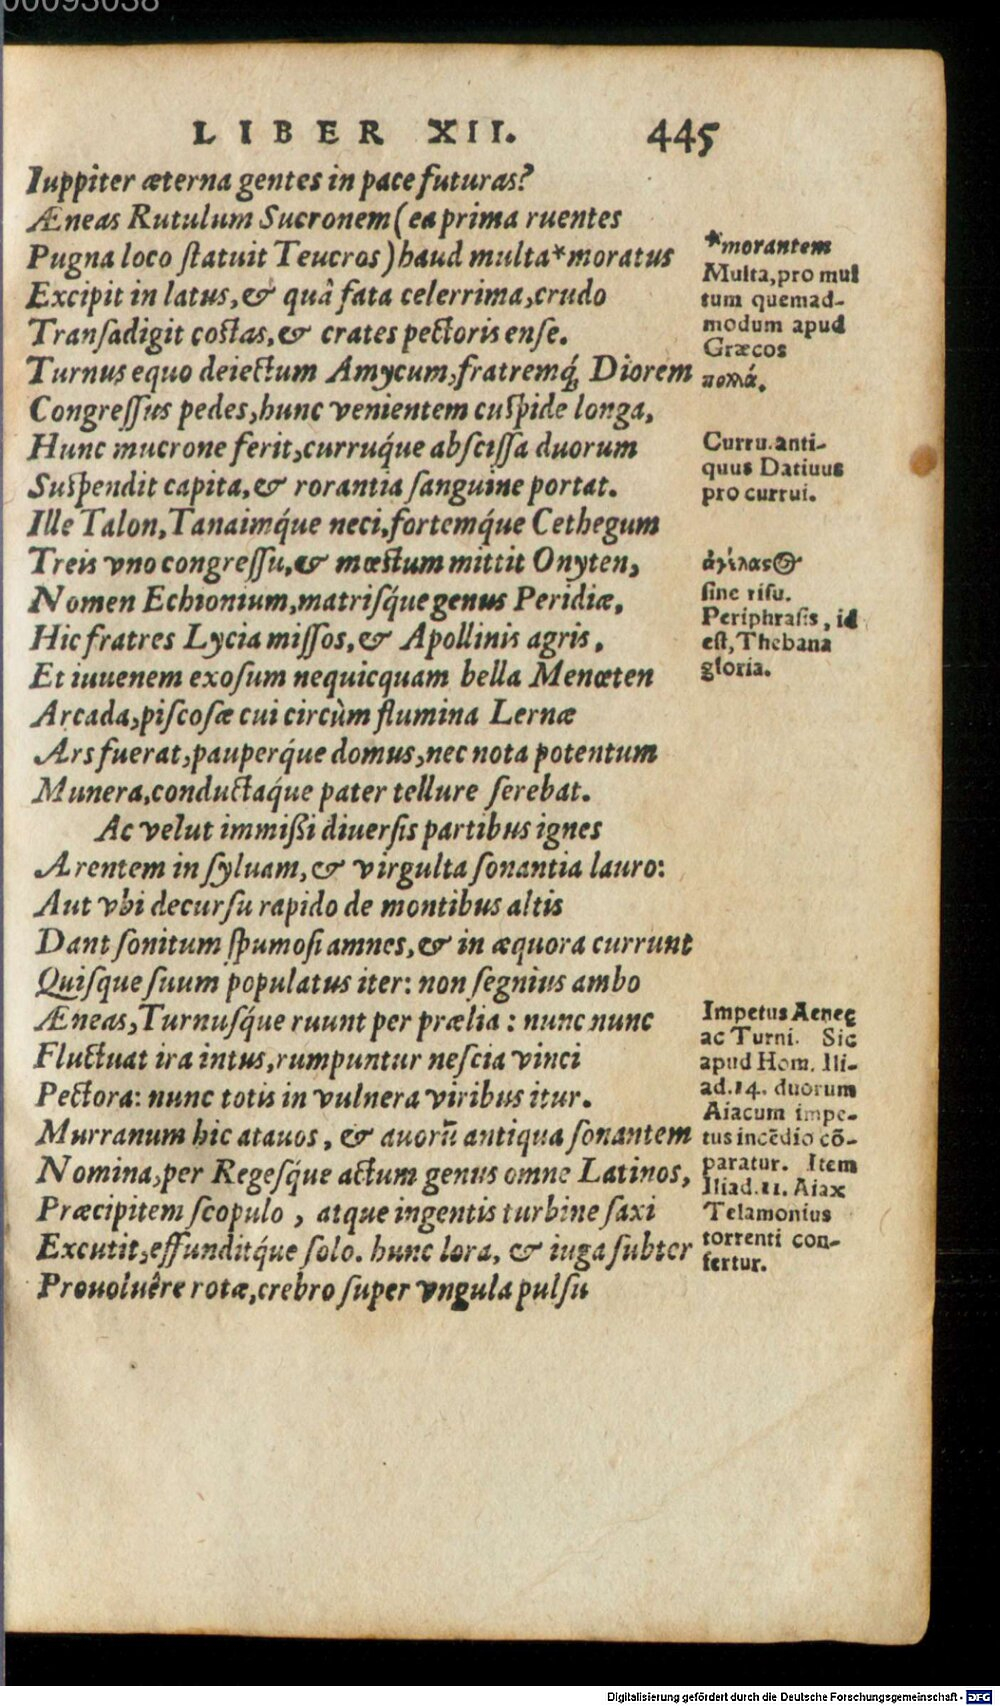 00093038
LIBER XII. 445
Iuppiter æterna gentes in pace futuras?
Æneas Rutulum Sucronem (ea prima ruentes
Pugna loco ſtatuit Teucros) haud multa*moratus
Excipit in latus, & quâ fata celerrima, crudo
Tranſadigit coſtas, & crates pectoris enſe.
Turnus equo deiectum Amycum, fratremq́; Diorem
Congreſſus pedes, hunc venientem cuſpide longa,
Hunc mucrone ferit, curruq́ue abſciſſa duorum
Suſpendit capita, & rorantia ſanguine portat.
Ille Talon, Tanaimq́ue neci, fortemq́ue Cethegum
Treis vno congreſſu, & mœſtum mittit Onyten,
Nomen Echionium, matriſq́ue genus Peridiæ,
Hic fratres Lycia miſſos, & Apollinis agris,
Et iuuenem exoſum nequicquam bella Menœten
Arcada, piſcoſæ cui circùm flumina Lernæ
Ars fuerat, pauperq́ue domus, nec nota potentum
Munera, conductaq́ue pater tellure ſerebat.
Ac velut immißi diuerſis partibus ignes
Arentem in ſyluam, & virgulta ſonantia lauro:
Aut vbi decurſu rapido de montibus altis
Dant ſonitum ſpumoſi amnes, & in æquora currunt
Quiſque ſuum populatus iter: non ſegnius ambo
Æneas, Turnuſq́ue ruunt per prælia: nunc nunc
Fluctuat ira intus, rumpuntur neſcia vinci
Pectora: nunc totis in vulnera viribus itur.
Murranum hic atauos, & auorũ antiqua ſonantem
Nomina, per Regeſq́ue actum genus omne Latinos,
Præcipitem ſcopulo, atque ingentis turbine ſaxi
Excutit, effunditq́ue ſolo. hunc lora, & iuga ſubter
Prouoluêre rotæ, crebro ſuper vngula pulſu
*morantem
Multa, pro mul
tum quemad-
modum apud
Græcos
πολλά.
Curru. anti-
quus Datiuus
pro currui.
ἀγέλαστος
ſine riſu.
Periphraſis, id
eſt, Thebana
gloria.
Impetus Aeneę
ac Turni. Sic
apud Hom. Ili-
ad.14. duorum
Aiacum impe-
tus incẽdio cõ-
paratur. Item
Iliad.11. Aiax
Telamonius
torrenti con-
fertur.
Digitalisierung gefördert durch die Deutsche Forschungsgemeinschaft - DFG